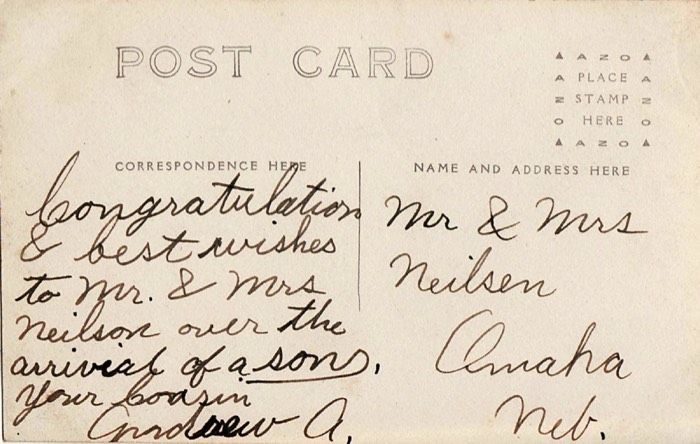 POST CARD
▲ A Z O ▲
A PLACE A
Z STAMP Z
O HERE O
▲ A Z O ▲
CORRESPONDENCE HERE
Congratulation
& best wishes
to Mr. & Mrs
Neilson over the
arrivial of a son.
Your Cousin
Andrew A.
NAME AND ADDRESS HERE
Mr & Mrs
Neilsen
Omaha
Neb.